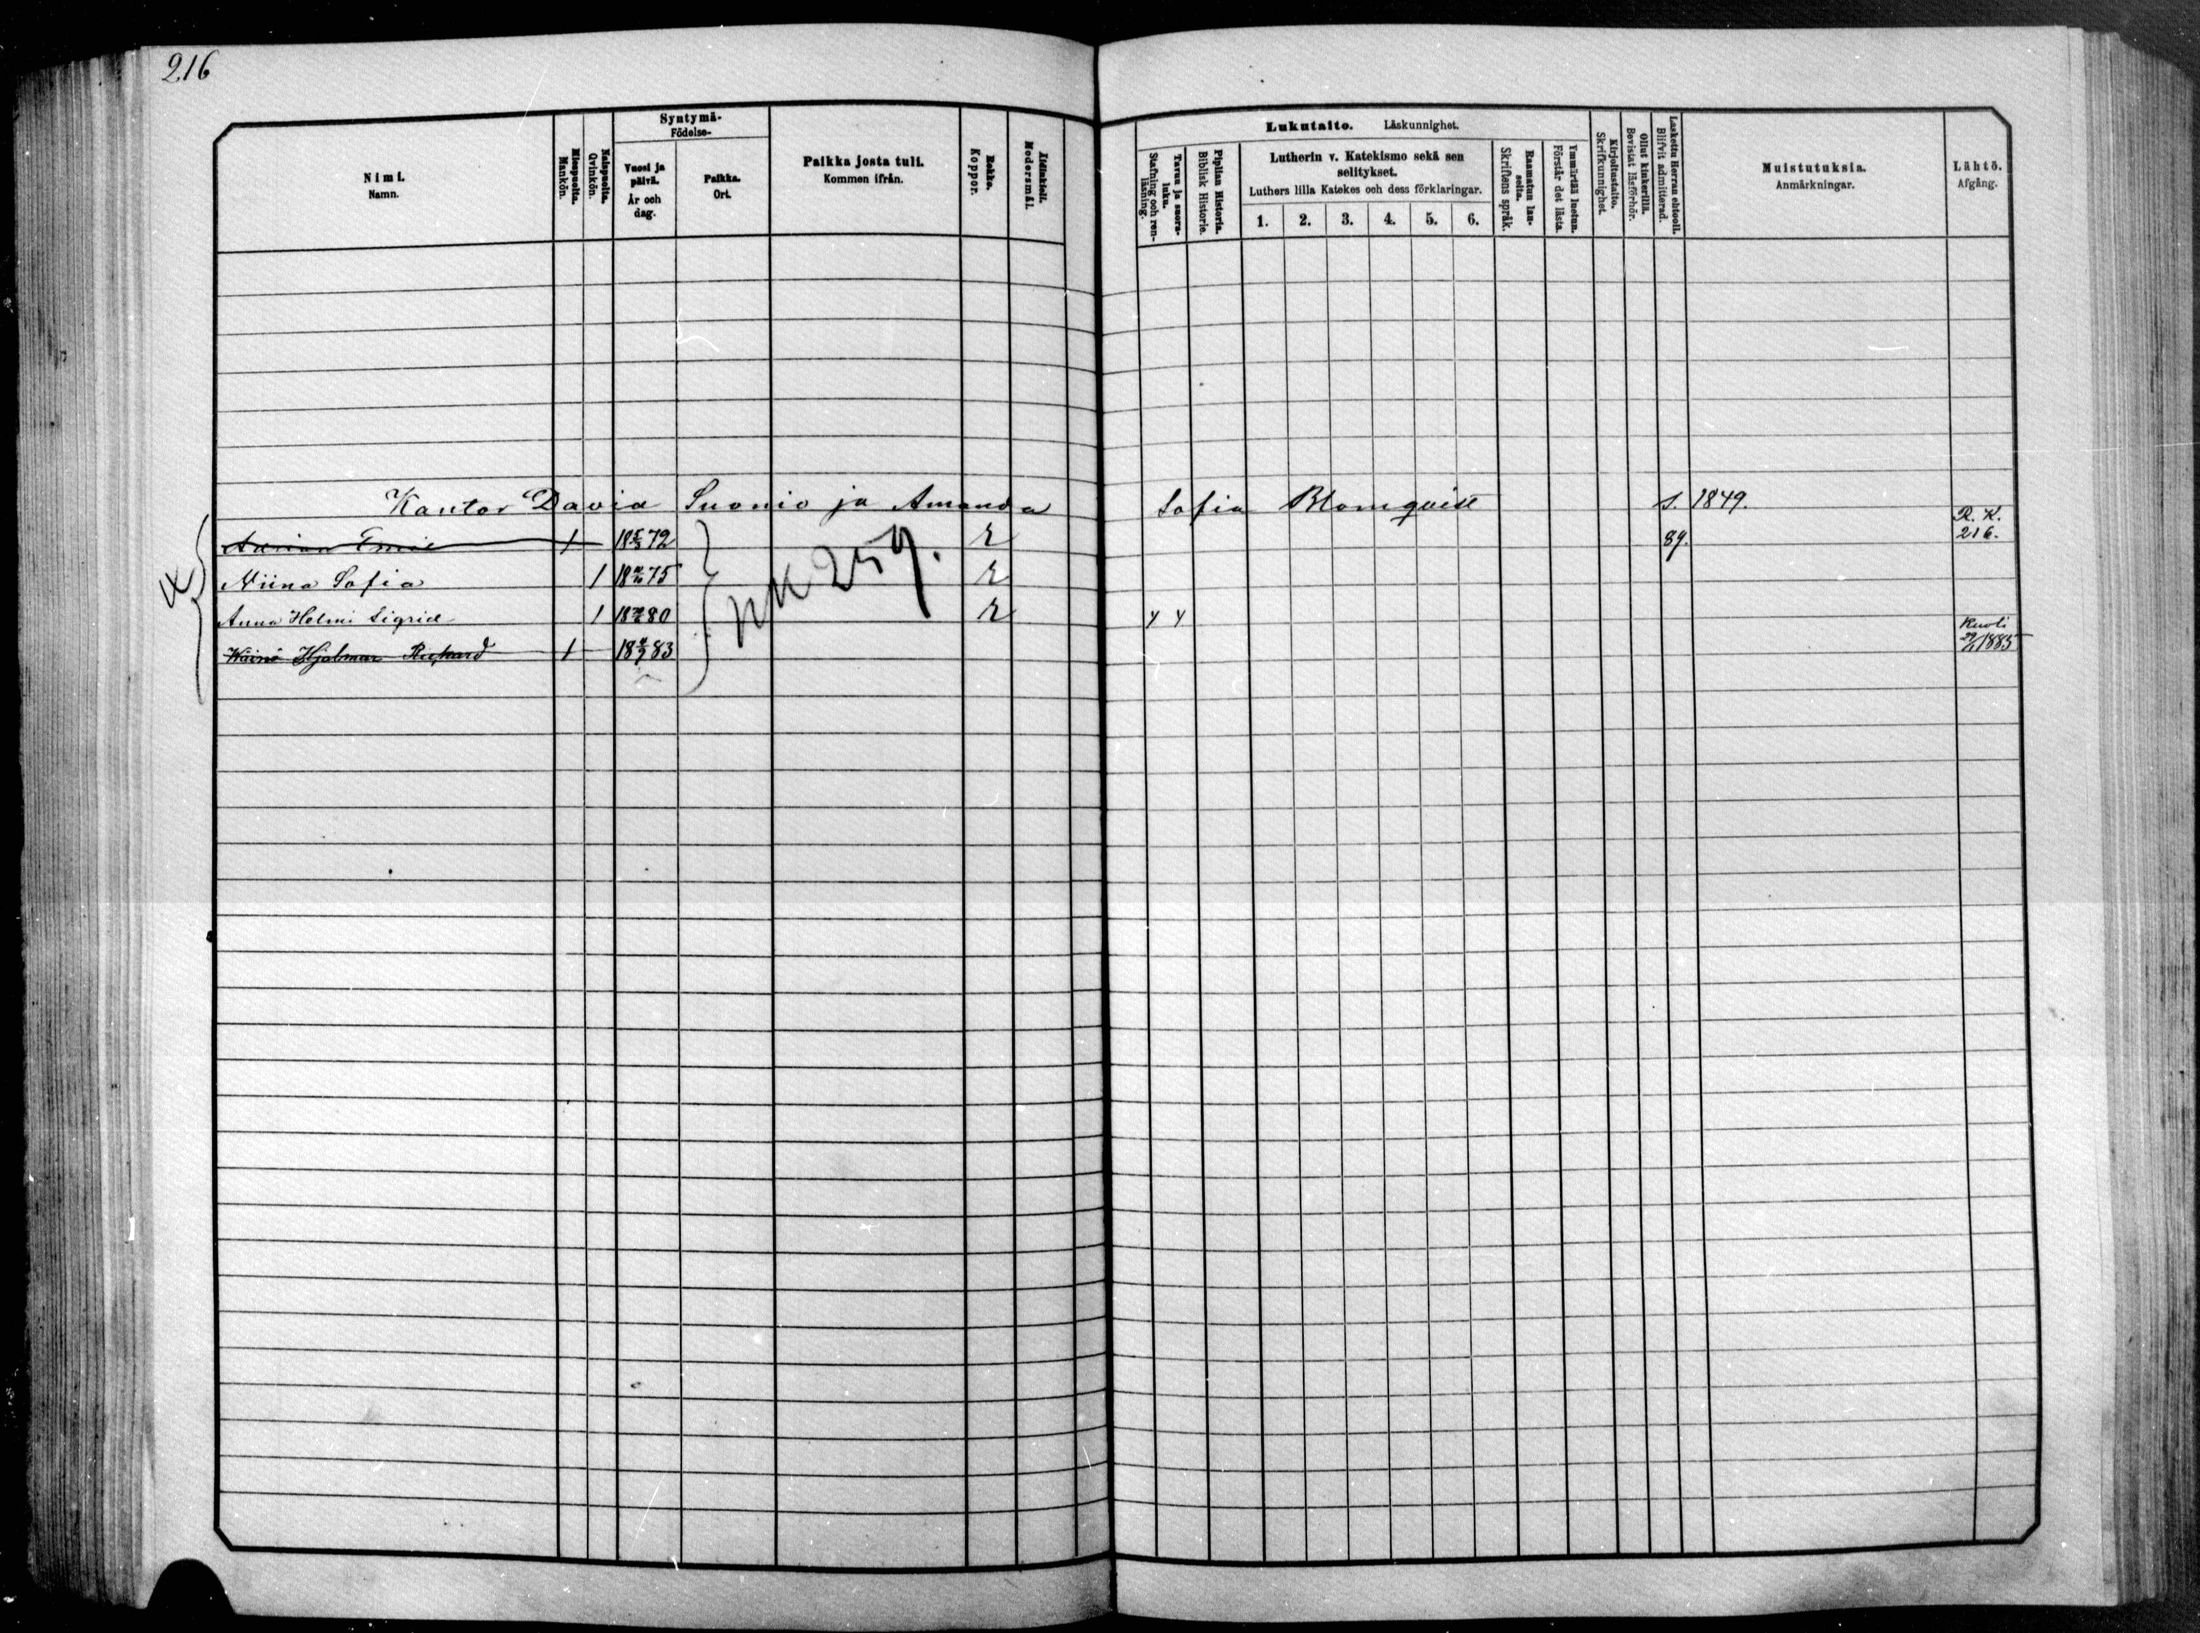 216
Syntymä-
Födelse-
Nimi.
Namn.
Miespuolia.
Mankön.
Naispuolia.
Qvinkön.
Vuosi ja päivä.
År och dag.
Paikka.
Ort.
Paikka josta tuli.
Kommen ifrån.
Rokko.
Koppor.
Äidinkieli.
Modersmål.
Lukutaito. Läskunnighet.
Tavuu ja suora-luku.
Stafning och ren-läsning.
Piplian Historia.
Biblisk Historie.
Lutherin v. Katekismo sekä sen
selitykset.
Luthers lilla Katekes och dess förklaringar.
1. 2. 3. 4. 5. 6.
Raamatun lau-seita.
Skriftens språk.
Ymmärtää luetun.
Förstår det lästa.
Kirjoitustaito.
Skrifkunnighet.
Ollut kinkerillä.
Bevistat läsförhör.
Laskettu Herran ehtoolI.
Blifvit admitterad.
Muistutuksia.
Anmärkningar.
Lähtö.
Afgång.
Kantor David Suonio ja Amanda Sofia Blomqvist s. 1849.
Emil 1 18 72 89. R. K. 216.
Niina Sofia 1 18 75
Anna Helmi Sigrid 1 18 80
Wäinö Hjalmar Rickard 1 18 83 Kuoli 1885
259.